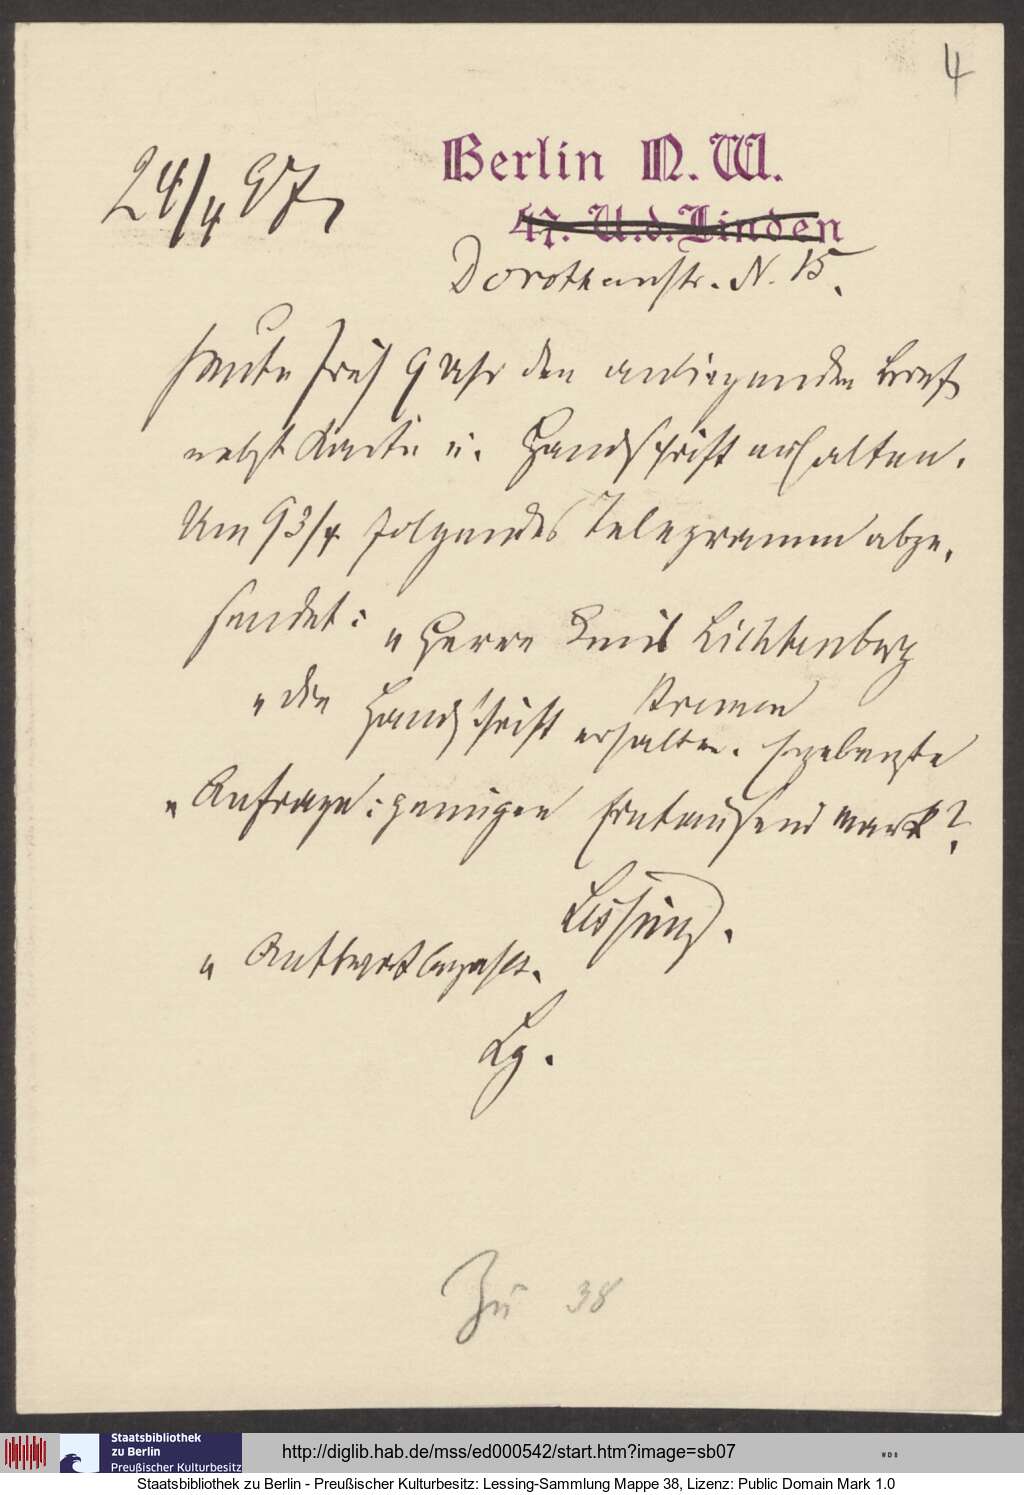 4
24/4 97,
Berlin N. W.
47. U. d. Linden
Dorotheenstr. N. 15.
Heute früh 9 Uhr den anliegenden Brief
nebst Karte u. Handschrift erhalten.
Um 9 3/4 folgendes Telegramm abge-
sendet: "Herrn Emil Lichtenberg
Bremen
"die Handschrift erhalten. Ergebenste
"Anfrage: genügen Eintausend Mark?
Lessing.
"Antwort bezahlt.
Lg.
Zu 38
Staatsbibliothek
zu Berlin
Preußischer Kulturbesitz
http://diglib.hab.de/mss/ed000542/start.htm?image=sb07
Staatsbibliothek zu Berlin - Preußischer Kulturbesitz: Lessing-Sammlung Mappe 38, Lizenz: Public Domain Mark 1.0